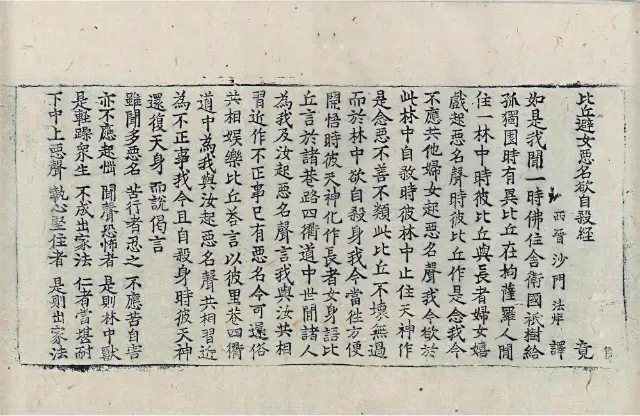 比丘避女惡名欲自殺經 竟
西晉沙門法炬 譯
如是我聞一時佛住舍衛國祇樹給
孤獨園時有異比丘在拘薩羅人間
住一林中時彼比丘與長者婦女嬉
戲起惡名聲時彼比丘作是念我今
不應共他婦女起惡名聲我今欲於
此林中自殺時彼林中止住天神作
是念惡不善不類此比丘不壞無過
而於林中欲自殺身我今當往方便
開悟時彼天神化作長者女身語比
丘言於諸巷路四衢道中世間諸人
為我及汝起惡名聲言我與汝共相
習近作不正事已有惡名今可還俗
共相娛樂比丘荅言以彼里巷四衢
道中為我與汝起惡名聲共相習近
為不正事我今且自殺身時彼天神
還復天身而說偈言
雖聞多惡名 苦行者忍之 不應苦自害
亦不應起惱 聞聲恐怖者 是則林中獸
是輕躁衆生 不成出家法 仁者當堪耐
下中上惡聲 執心堅住者 是則出家法